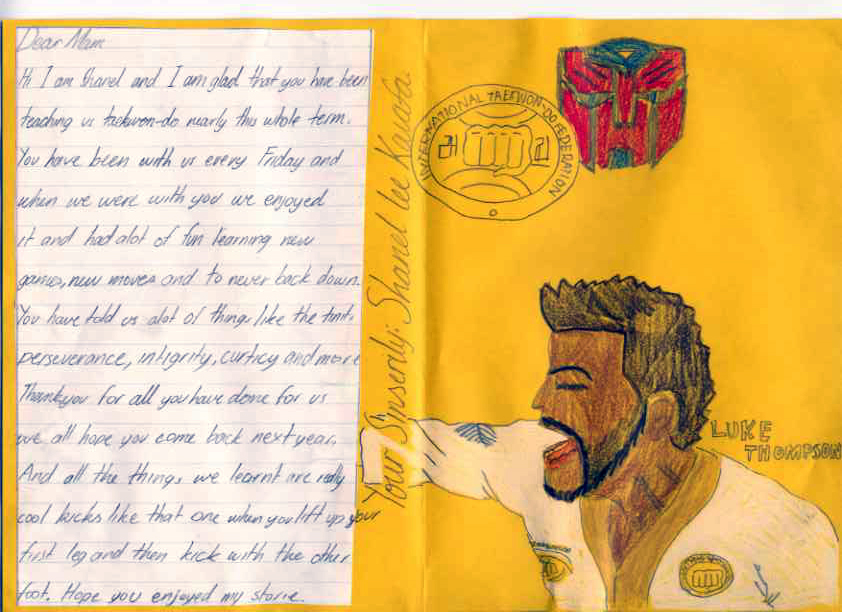 Dear Mam
Hi I am Shanel and I am glad that you have been
teaching us taekwon-do nearly this whole term.
You have been with us every Friday and
when we were with you we enjoyed
it and had alot of fun learning new
games, new moves and to never back down.
You have told us alot of things like the
perseverance, intigrity, curticy and more
Thankyou for all you have done for us
we all hope you come back next year.
And all the things we learnt are really
cool kicks like that one when you lift up your
first leg and then kick with the other
foot. Hope you enjoyed my storie.
Your Sinserily: Shanel lee
INTERNATIONAL TAEKWON-DO FEDERATION
LUKE
THOMPSON